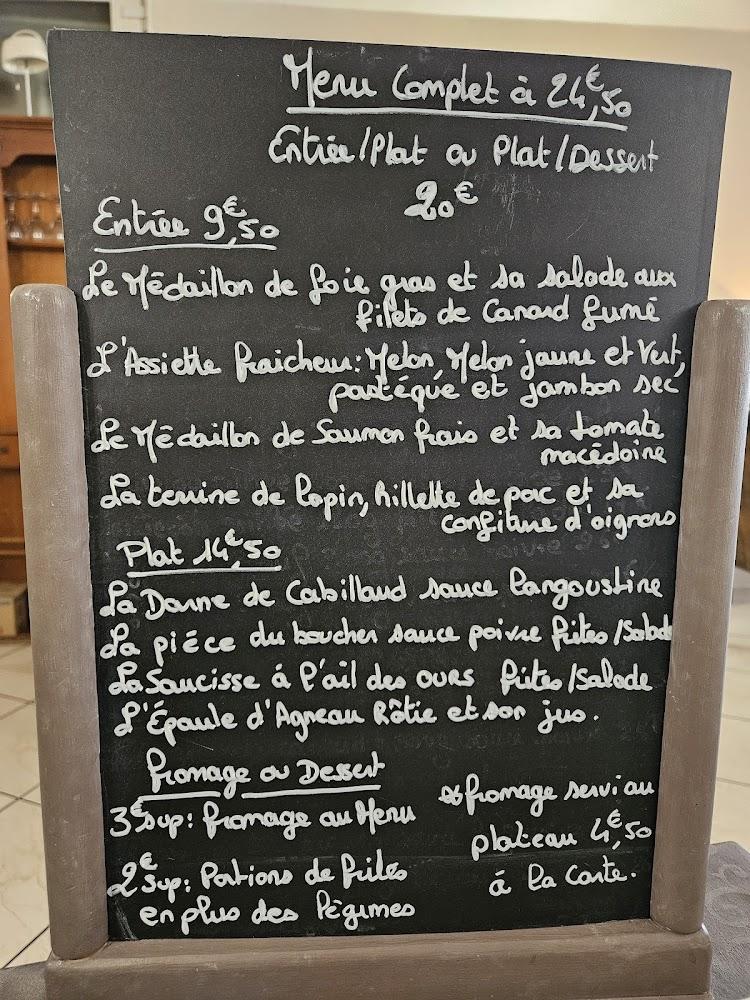 Menu Complet à 24€,50
Entrée/Plat ou Plat/Dessert
20€
Entrée 9€,50
Le Médaillon de foie gras et sa salade aux
filets de Canard fumé
L'Assiette fraicheur: Melon, Melon jaune et Vert,
pastéque et jambon sec
Le Médaillon de Saumon frais et sa tomate
macédoine
La terrine de lapin, rillette de porc et sa
confiture d'oignons
Plat 14€,50
La Darne de Cabillaud sauce langoustine
La piéce du boucher sauce poivre frites/Salade
La Saucisse á l'ail des ours frites/Salade
L'Épaule d'Agneau Rôtie et son jus.
fromage ou Dessert
3€ sup: fromage au Menu
fromage servi au
plateau 4€,50
á la Carte.
2€ sup: Portions de frites
en plus des légumes